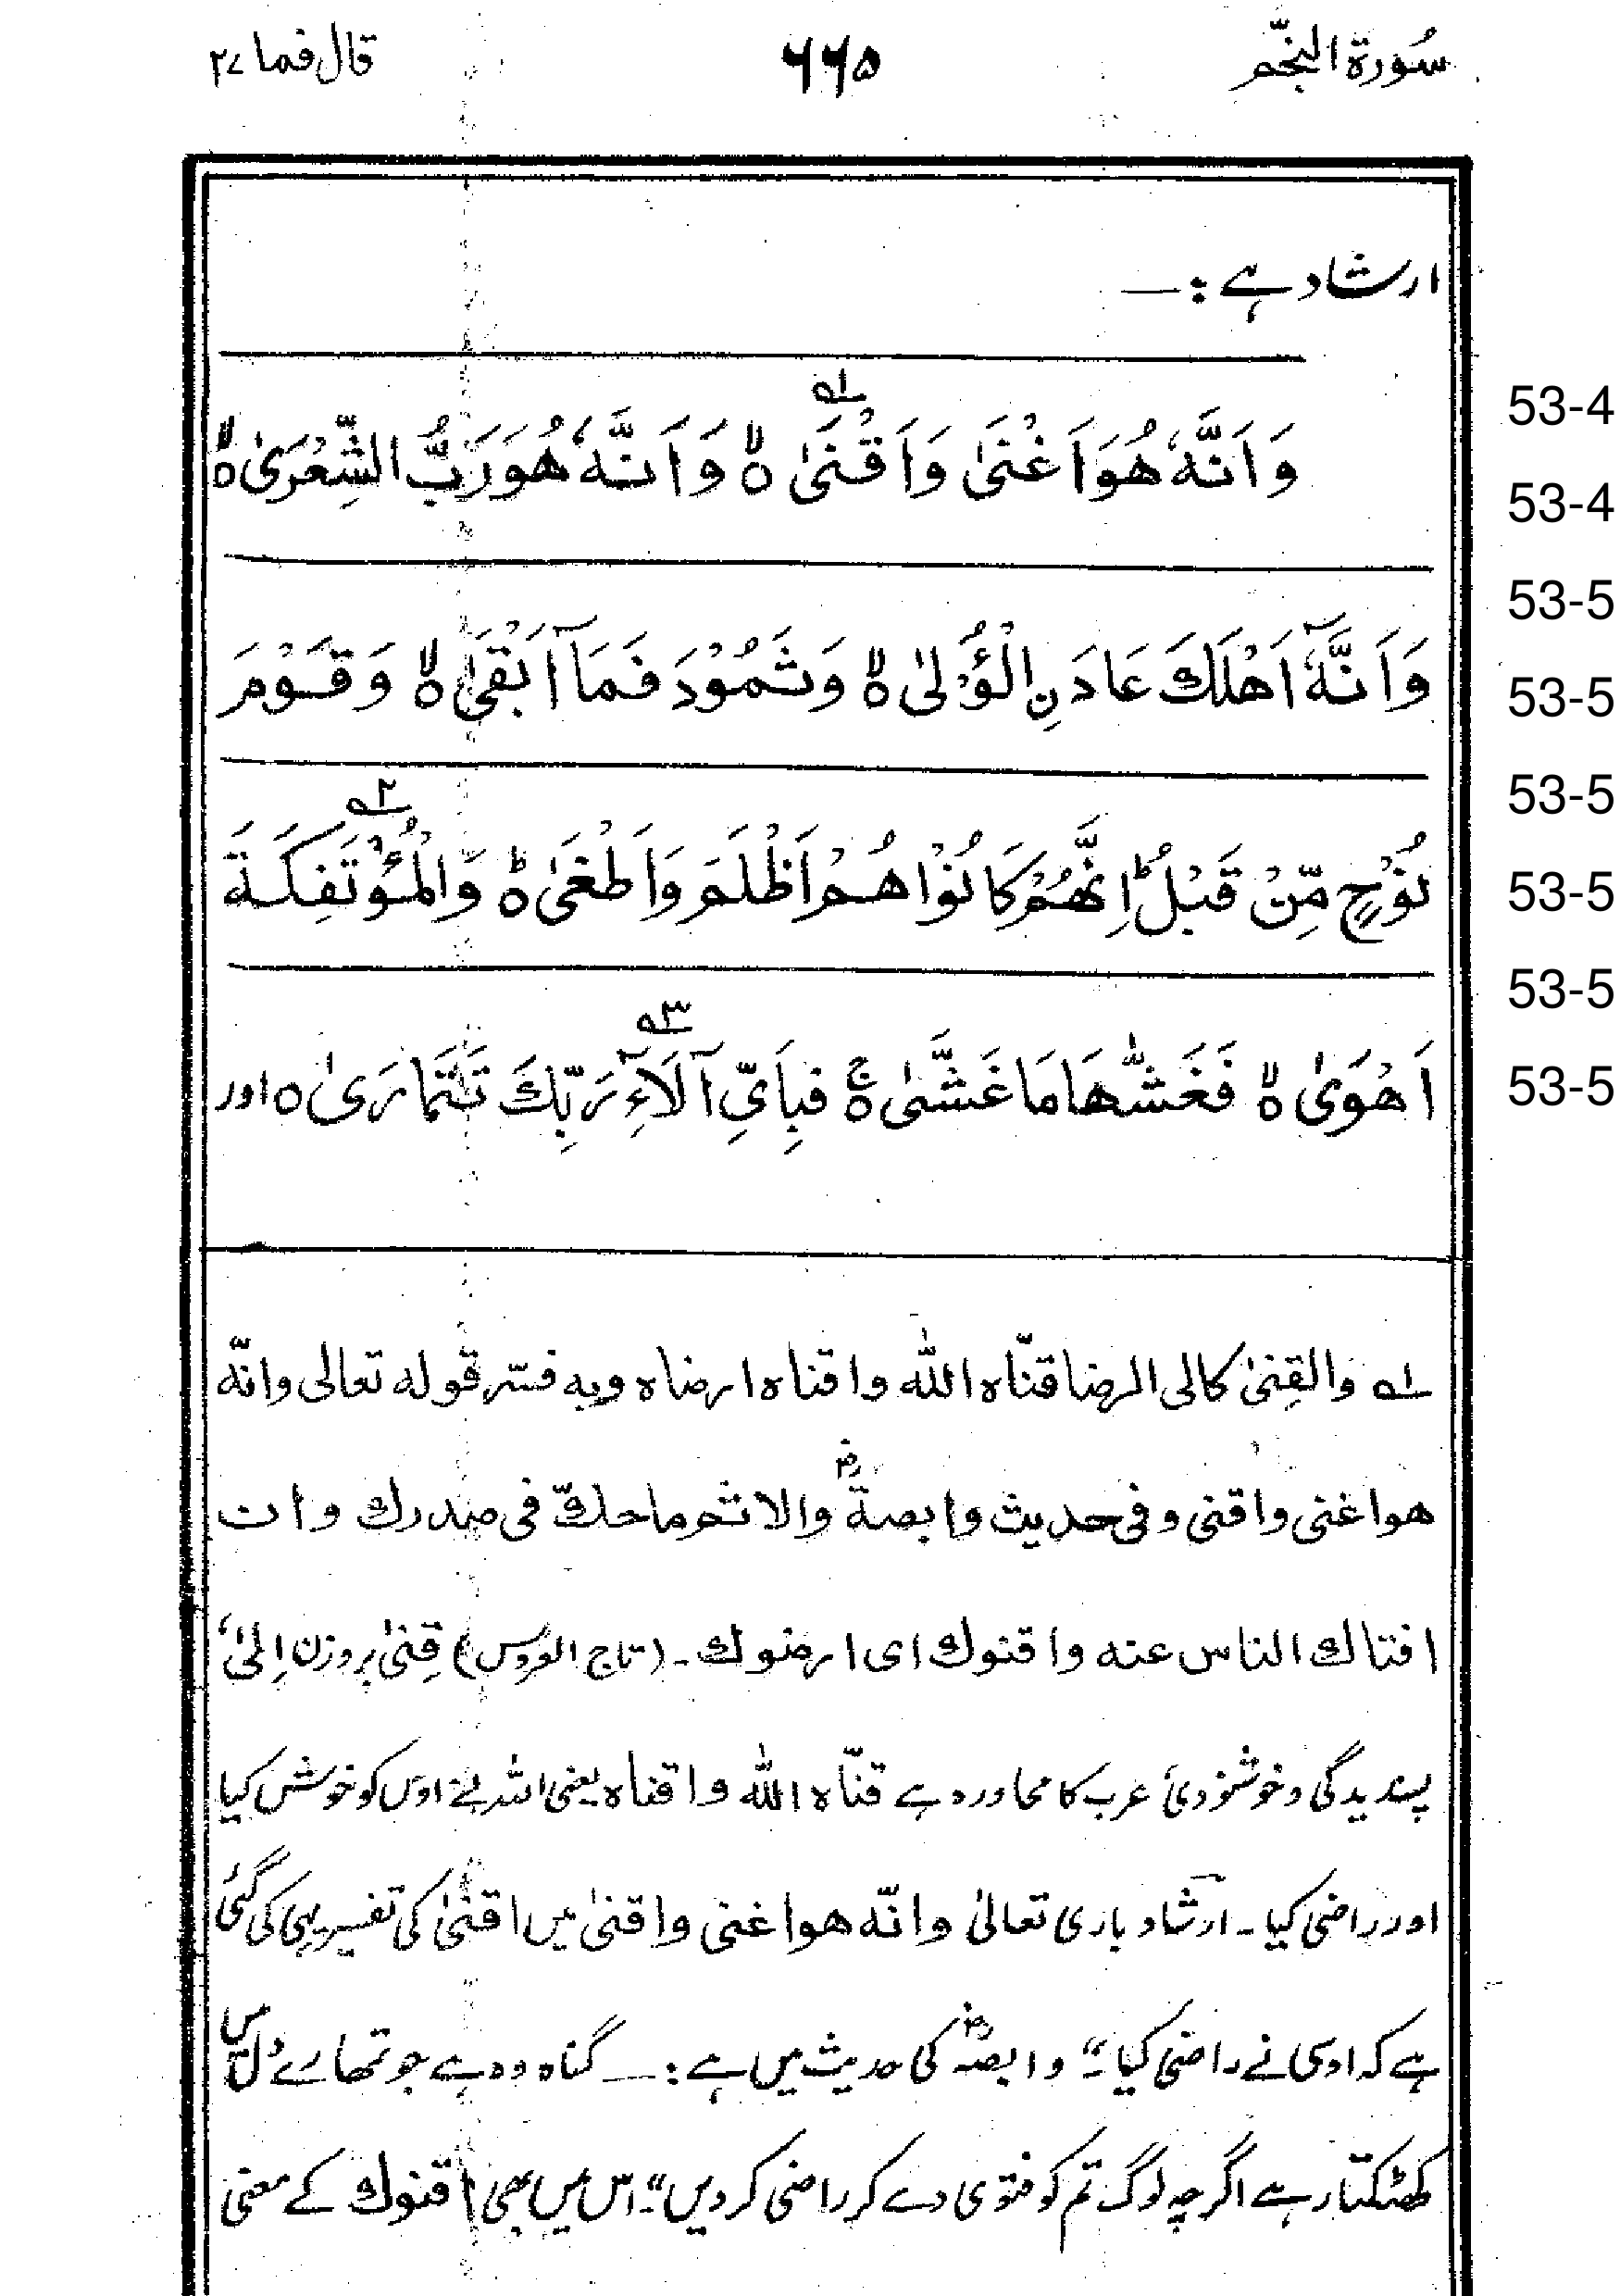 سُورة النجّم ۶۶۵ قال فما ۲۷
ارشاد ہے :—
وَاَنَّهٗ هُوَ اَغْنٰى وَاَقْنٰى ۵ۙ وَاَنَّهٗ هُوَ رَبُّ الشِّعْرٰى ۵ۙ
۱ه
53-4
53-4
وَاَنَّهٗٓ اَهْلَكَ عَادَنِ الْاُوْلٰى ۵ۙ وَثَمُوْدَ فَمَآ اَبْقٰى ۵ۙ وَقَوْمَ
53-5
53-5
نُوْحٍ مِّنْ قَبْلُ ؕ اِنَّهُمْ كَانُوْا هُمْ اَظْلَمَ وَاَطْغٰى ۵ؕ وَالْمُؤْتَفِكَةَ
۲ه
53-5
53-5
اَهْوٰى ۵ۙ فَغَشّٰهَا مَا غَشّٰى ۵ۚ فَبِاَيِّ اٰلَآءِ رَبِّكَ تَتَمَارٰى ۵ اور
۳ه
53-5
53-5
۱ه والقِنىٰ كالى الرضا قنّاه الله واقناه ارضاه وبه فسّر قوله تعالى وانّه
هو اغنى واقنى وفى حديث وابصةؓ والاثم ما حكّ فى صدرك وان
افتاك الناس عنه واقنوك اى ارضوك ۔ (تاج العروس) قِنىٰ بروزن اِلىٰ،
پسندیدگی وخوشنودیٔ عرب کا محاورہ ہے قنّاه الله واقناه یعنی اللہ نے اوس کو خوش کیا
اور راضی کیا ۔ ارشاد باری تعالیٰ وانّه هو اغنى واقنىٰ میں اقنىٰ کی تفسیر یہی کی گئی
ہے کہ اوسی نے راضی کیا ۔" وابصہؓ کی حدیث میں ہے :— گناہ وہ ہے جو تمھارے دل میں
کھٹکتا رہے اگرچہ لوگ تم کو فتوی دے کر راضی کر دیں"۔ اس میں بھی اقنوك کے معنی